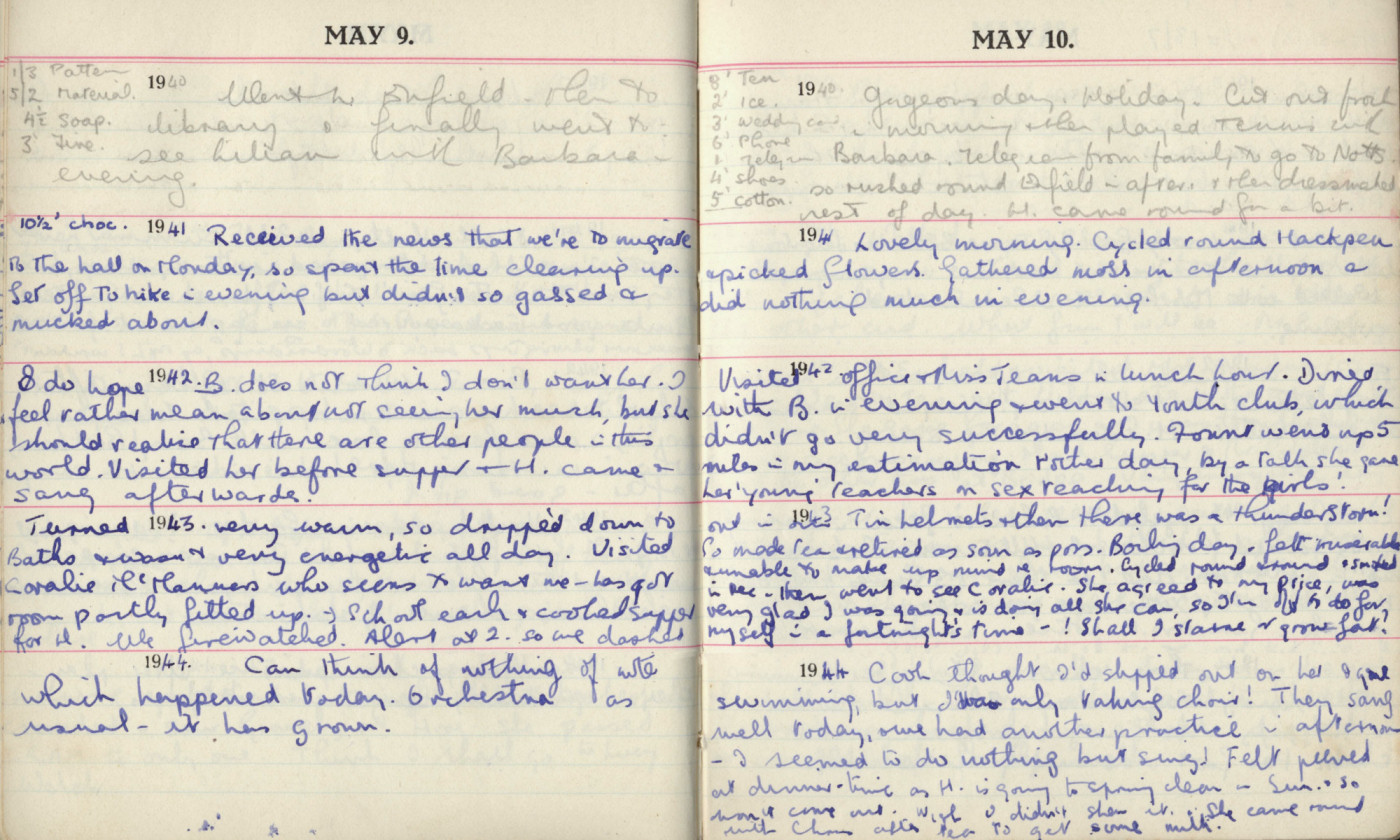 MAY 9.
1/3 Pattern
5/2 Material.
4½ Soap.
3' Fine.
1940 Went to Enfield - then to
library & finally went to
see Lilian with Barbara in
evening.
10½' choc. 1941 Received the news that we're to migrate
to the hall on Monday, so spent the time clearing up.
Set off to hike in evening but didn't so gassed &
mucked about.
I do hope 1942. B. does not think I don't want her. I
feel rather mean about not seeing her much, but she
should realise that there are other people in this
world. Visited her before supper + H. came &
sang afterwards!
Turned 1943. very warm, so dripped down to
Baths & wasn't very energetic all day. Visited
Coralie McManners who seems to want me - has got
room partly fitted up. School early & cooked supper
for H. We firewatched. Alert at 2. so we dashed
1944. Can think of nothing of note
which happened today. Orchestra as
usual - it has grown.
MAY 10.
8' Tea
2' Ice.
3' wedding car
6' Phone
1' Telegram
4' shoes
5' cotton.
1940. Gorgeous day. Holiday. Cut out frock
in morning & then played Tennis with
Barbara. Telegram from family to go to Notts
so rushed round Enfield in after. & then dressmaked
rest of day. H. came round for a bit.
1941 Lovely morning. Cycled round Hackpen
& picked flowers. Gathered moss in afternoon &
did nothing much in evening.
Visited 1942 office & Miss Teans in lunch hour. Dined
with B. in evening & went to Youth club, which
didn't go very successfully. Fount went up 5
miles in my estimation t'other day, by a talk she gave
her 'young' teachers on sex teaching for the girls!
out in 1943 Tin helmets & then there was a thunderstorm!
So made tea & retired as soon as poss. Boiling day. Felt miserable
& unable to make up mind re room. Cycled round
in rec. - then went to see Coralie. She agreed to my price, was
very glad I was going & is doing all she can, so I'm off to do for
myself in a fortnight's time - ! Shall I starve or grow fat?
1944 Cook thought I'd slipped out on her & gone
swimming, but I was only taking choir! They sang
well today, & we had another practice in afternoon
- I seemed to do nothing but sing! Felt peeved
at dinner-time as H. is going to spring clean on Sun. & so
won't come out. Wish I didn't show it. She came round
with Chow after tea to get some milk.